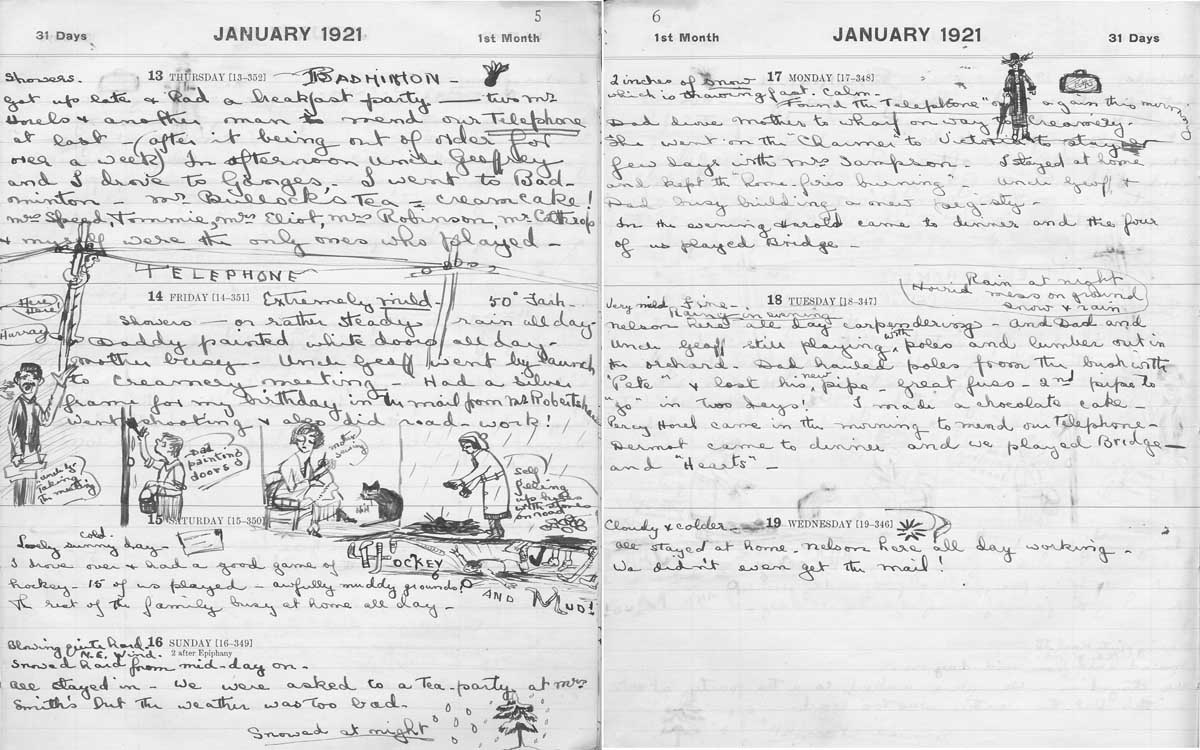 5
31 Days
JANUARY 1921
1st Month
Showers.
13 THURSDAY [13-352]
BADMINTON -
Got up late & had a breakfast party — two Mr
Horels & another man to mend our Telephone
at last - (after it being out of order for
over a week) In afternoon Uncle Geoffrey
and I drove to Ganges, - I went to Bad-
minton - Mr Bullock's Tea = cream cake!
Mrs Speed, Tommie, Mrs Eliot, Mrs Robinson, Mr
& myself were the only ones who played -
TELEPHONE
Here Here!
Hurray
14 FRIDAY [14-351] Extremely mild - 50° Fah -
Showers - or rather steady rain all day
Daddy painted white doors all day -
Mother busy - Uncle Geoff went by launch
to Creamery meeting - Had a silver
frame for my birthday in the mail from Mr
Went shooting & also did road-work!
Uncle G. Taking the meeting
Dad painting doors
Mother sewing
Self filling up holes with stones on road
15 SATURDAY [15-350]
cold.
Lovely sunny day -
I drove over & had a good game of
hockey - 15 of us played - awfully muddy grounds!
HOCKEY
AND MUD!
The rest of the family busy at home all day -
16 SUNDAY [16-349]
2 after Epiphany
Blowing quite hard.
N.E. Wind.
Snowed hard from mid-day on -
All stayed in - We were asked to a Tea-party at Mrs
Smith's but the weather was too bad -
Snowed at night
6
1st Month
JANUARY 1921
31 Days
2 inches of snow
17 MONDAY [17-348]
which is thawing fast. Calm -
"Found the Telephone" on again this morning
Dad drove Mother to wharf on way to Creamery -
She went on the "Charmer" to Victoria to stay a
few days with Mrs Sampson - I stayed at home
and kept the "home-fires burning" - Uncle Geoff &
Dad busy building a new pig-sty -
In the evening Harold came to dinner and the four
of us played Bridge -
Rain at night
Horrid mess on ground
snow & rain
Very mild. Fine -
18 TUESDAY [18-347]
Rainy in evening
Nelson here all day carpendering - And Dad and
Uncle Geoff still playing with poles and lumber out in
the orchard - Dad hauled poles from the bush with
"Pete" & lost his new pipe - great fuss - 2nd pipe to
"go" in two days! I made a chocolate cake -
Percy Horel came in the morning to mend our Telephone -
Dermot came to dinner and we played Bridge -
and "Hearts" -
Cloudy & colder -
19 WEDNESDAY [19-346]
All stayed at home - Nelson here all day working -
We didn't even get the mail!